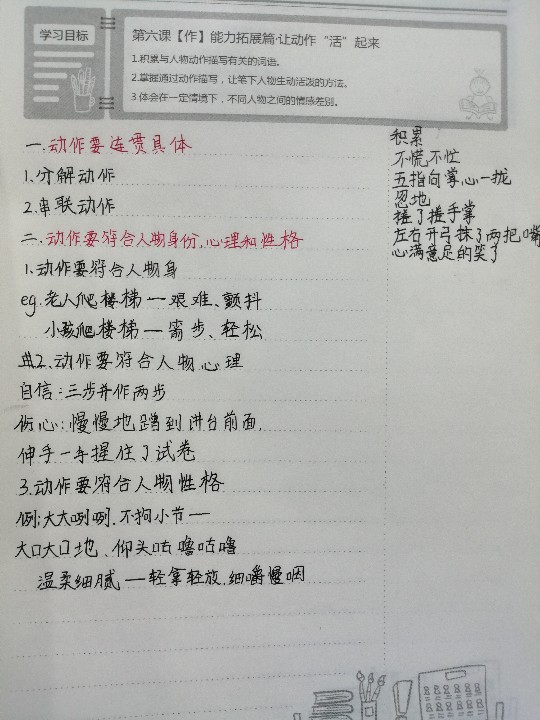 学习目标
第六课【作】能力拓展篇·让动作“活”起来
1.积累与人物动作描写有关的词语。
2.掌握通过动作描写，让笔下人物生动活泼的方法。
3.体会在一定情境下，不同人物之间的情感差别。
一.动作要连贯具体
1.分解动作
2.串联动作
二.动作要符合人物身份,心理和性格
1.动作要符合人物身
eg.老人爬楼梯一艰难、颤抖
小孩爬楼梯一 步、轻松
2.动作要符合人物心理
自信:三步并作两步
伤心:慢慢地蹭到讲台前面,
伸手一 捏住了试卷
3.动作要符合人物性格
例:大大咧咧,不拘小节—
大口大口地、仰头咕噜咕噜
温柔细腻—轻拿轻放,细嚼慢咽
积累
不慌不忙
五指向掌心一拢
忽地
搓了搓手掌
左右开弓抹了两把嘴
心满意足的笑了